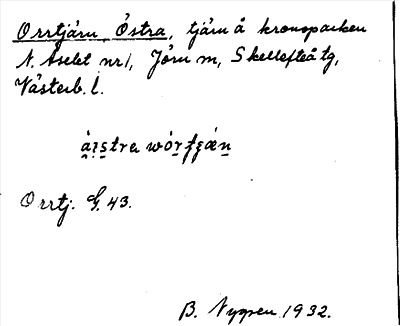 Orrtjärn, Östra, tjärn å kronoparken
N. Åselet nr 1, Jörn sn, Skellefteå tg,
Västerb. l.
Orrtj. G. 43.
B. Nygren 1932.